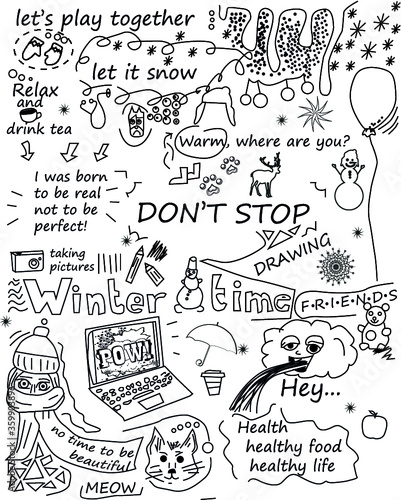 let's play together
let it snow
Relax
and
drink tea
Warm, where are you?
I was born
to be real
not to be
perfect!
DON'T STOP
DRAWING
taking
pictures
Winter time
F·R·I·E·N·D·S
POW!
Hey...
no time to be
beautiful
Health
healthy food
healthy life
MEOW